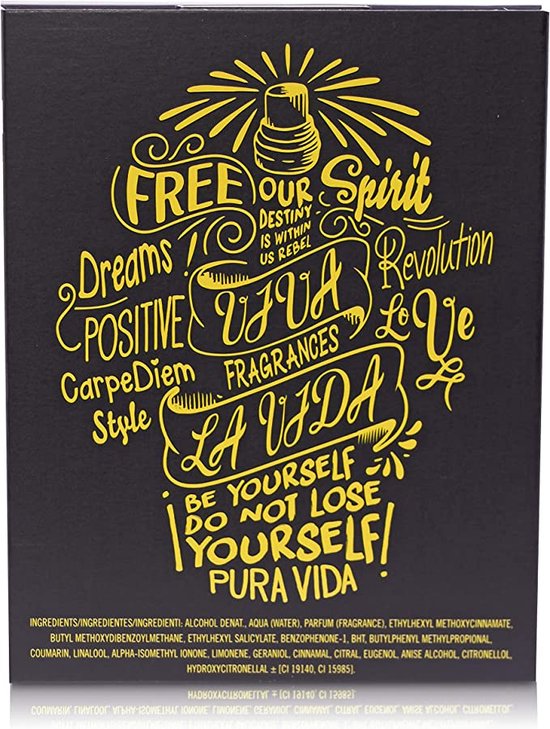 FREE OUR Spirit
DESTINY
IS WITHIN
US REBEL
Dreams!
Revolution
POSITIVE
VIVA
LoVe
FRAGRANCES
CarpeDiem
Style
LA VIDA
BE YOURSELF
DO NOT LOSE
YOURSELF!
PURA VIDA
INGREDIENTS/INGREDIENTES/INGREDIENTI: ALCOHOL DENAT., AQUA (WATER), PARFUM (FRAGRANCE), ETHYLHEXYL METHOXYCINNAMATE,
BUTYL METHOXYDIBENZOYLMETHANE, ETHYLHEXYL SALICYLATE, BENZOPHENONE-1, BHT, BUTYLPHENYL METHYLPROPIONAL,
COUMARIN, LINALOOL, ALPHA-ISOMETHYL IONONE, LIMONENE, GERANIOL, CINNAMAL, CITRAL, EUGENOL, ANISE ALCOHOL, CITRONELLOL,
HYDROXYCITRONELLAL ± [CI 19140, CI 15985].